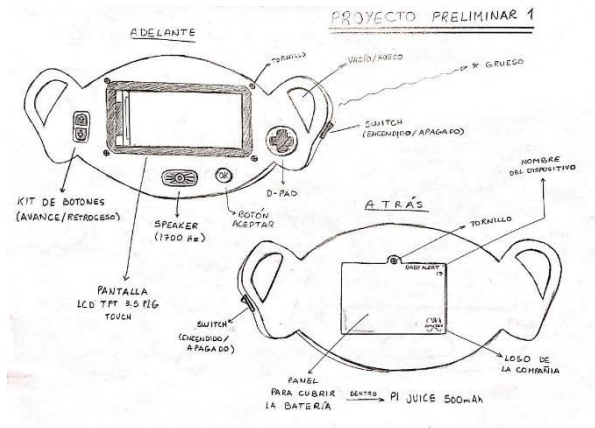 PROYECTO PRELIMINAR 1
ADELANTE
TORNILLO
VACÍO/HUECO
* GRUESO
SWITCH
(ENCENDIDO/APAGADO)
OK
D-PAD
KIT DE BOTONES
(AVANCE/RETROCESO)
SPEAKER
(1700 Hz)
BOTÓN
ACEPTAR
PANTALLA
LCD TFT 3.5 PLG
TOUCH
NOMBRE
DEL DISPOSITIVO
ATRÁS
TORNILLO
BABY ALERT
SWITCH
(ENCENDIDO/
APAGADO)
LOGO DE
LA COMPAÑIA
PANEL
PARA CUBRIR
LA BATERÍA
DENTRO
PI JUICE 500mAh